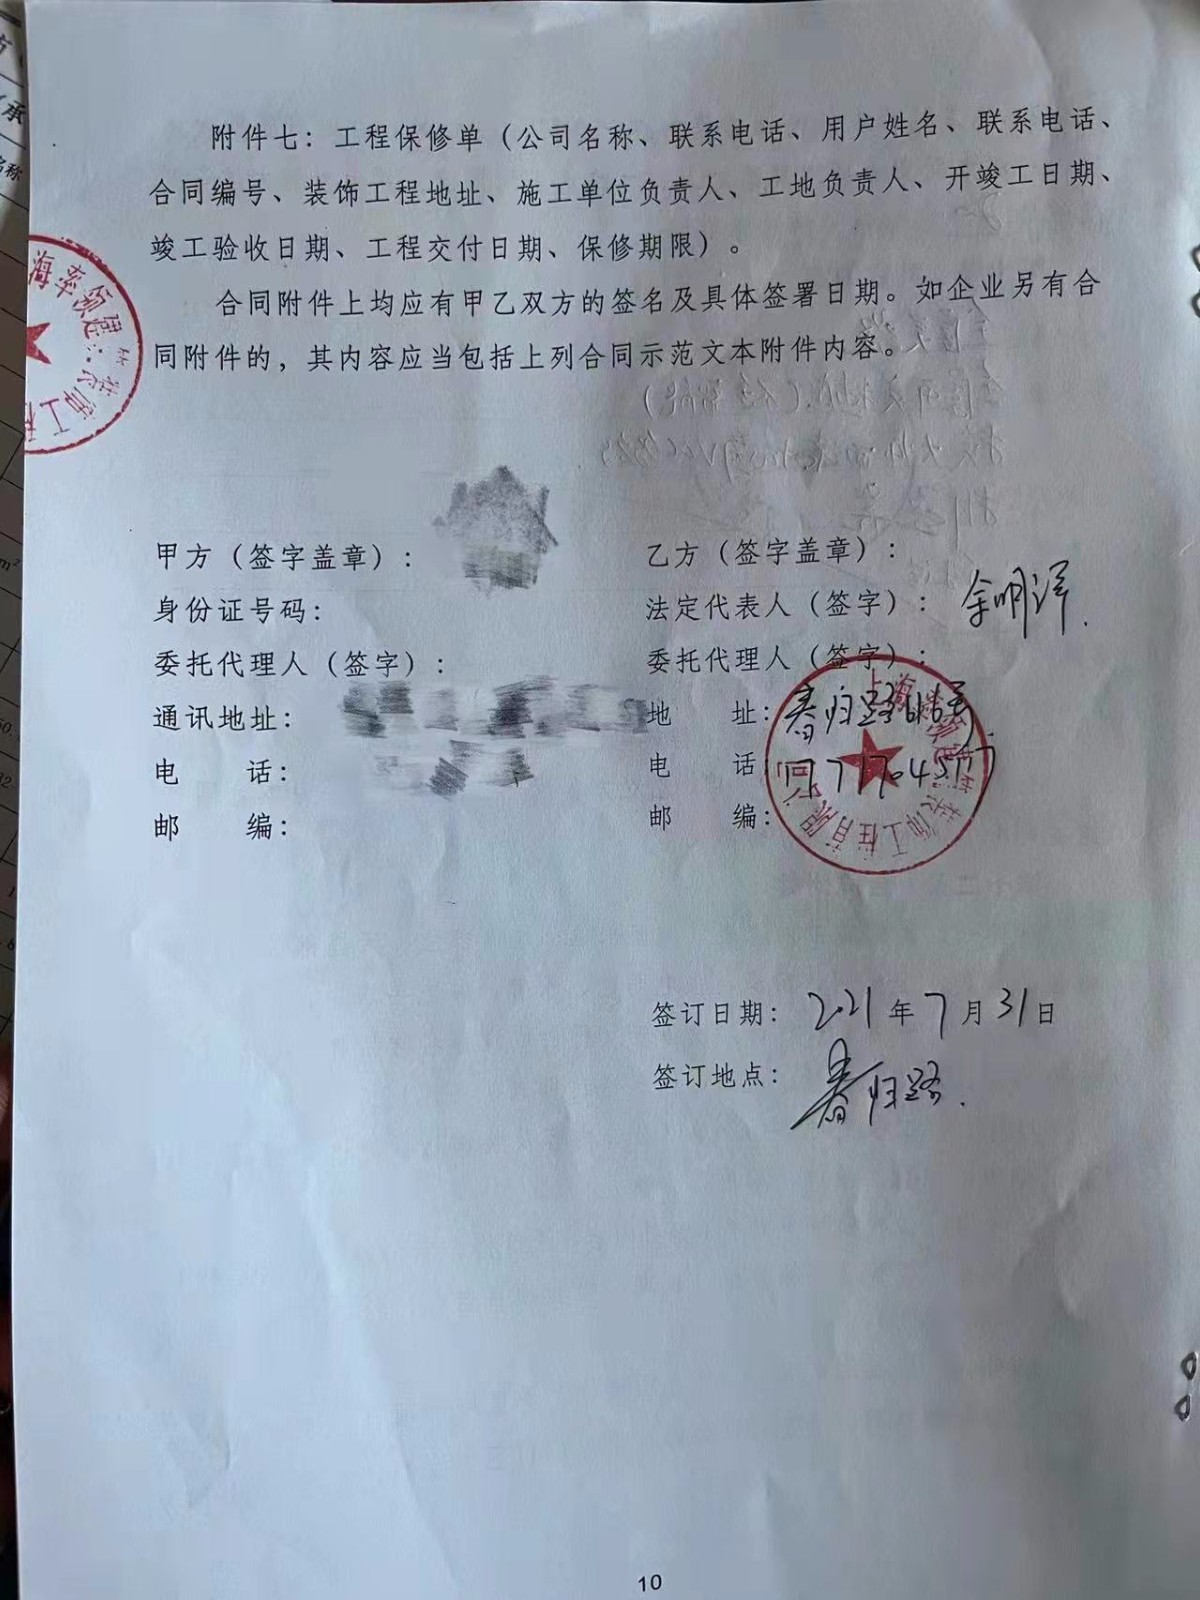 附件七：工程保修单（公司名称、联系电话、用户姓名、联系电话、
合同编号、装饰工程地址、施工单位负责人、工地负责人、开竣工日期、
竣工验收日期、工程交付日期、保修期限）。
合同附件上均应有甲乙双方的签名及具体签署日期。如企业另有合
同附件的，其内容应当包括上列合同示范文本附件内容。
甲方（签字盖章）：
身份证号码：
委托代理人（签字）：
通讯地址：
电 话：
邮 编：
乙方（签字盖章）：
法定代表人（签字）：余明洋.
委托代理人（签字）：
地 址：春归路616号
电 话
邮 编：
签订日期：2021年7月31日
签订地点：春归路.
10